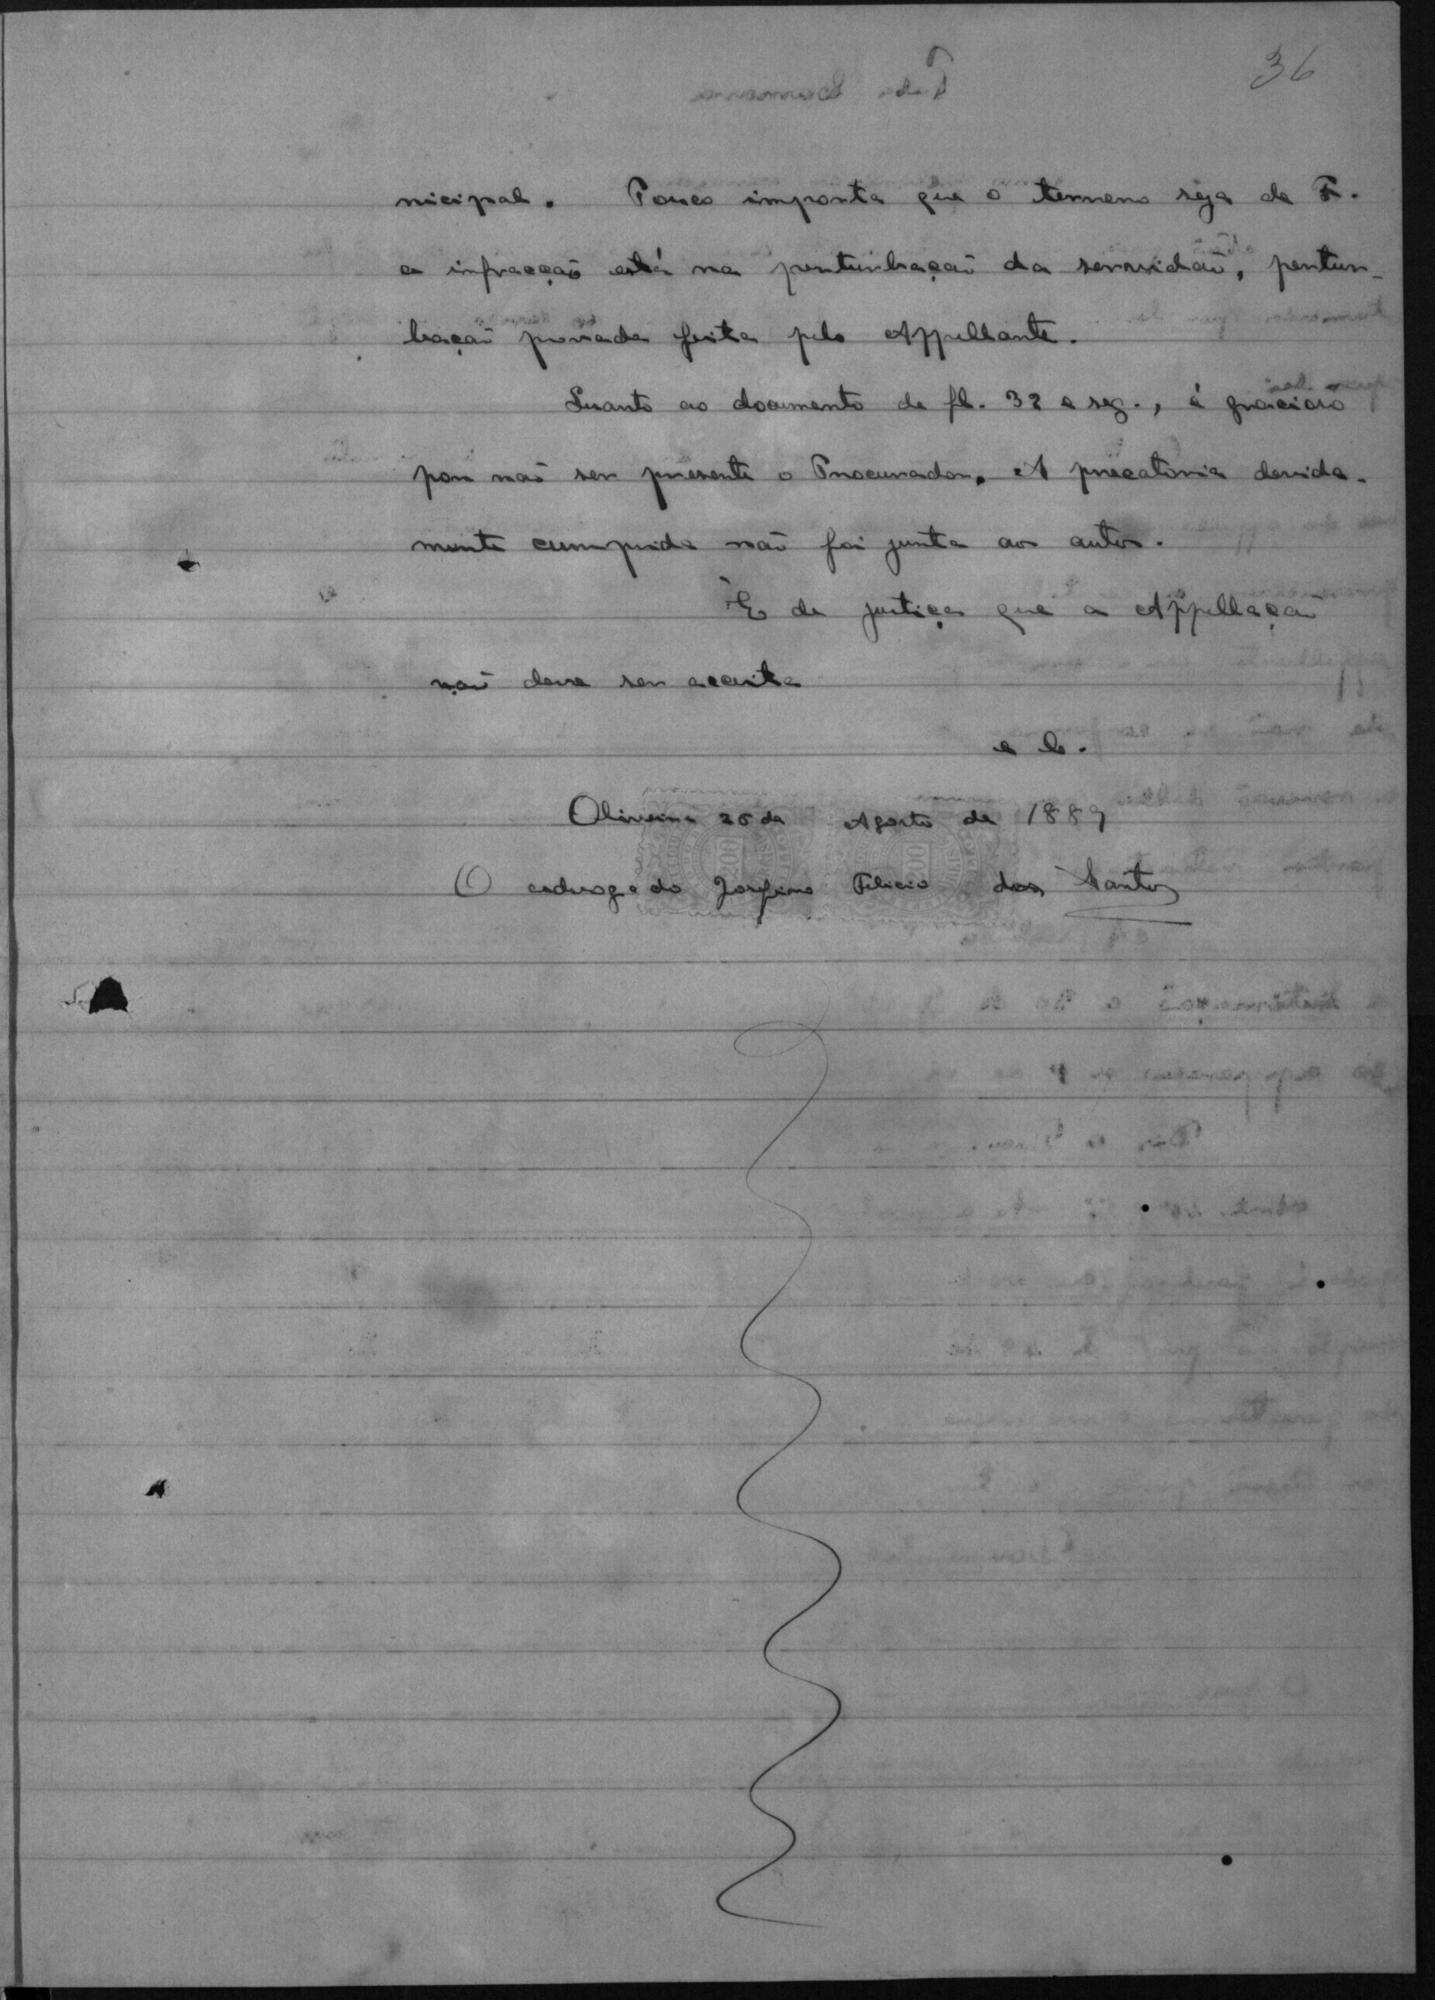 36
nicipal. Pouco importa que o terreno seja de F.
a infracção está na perturbação da servidão, pertur-
bação provada feita pelo Appellante.
Quanto ao documento de fl. 32 e seg., é gracioso
por não ser presente o Procurador. A precatoria devida-
mente cumprida não foi junta aos autos.
É de justiça que a Appellação
não deve ser aceita
e
Oliveira 26 de Agosto de 1889
O advogado Josefino Felicio dos Santos